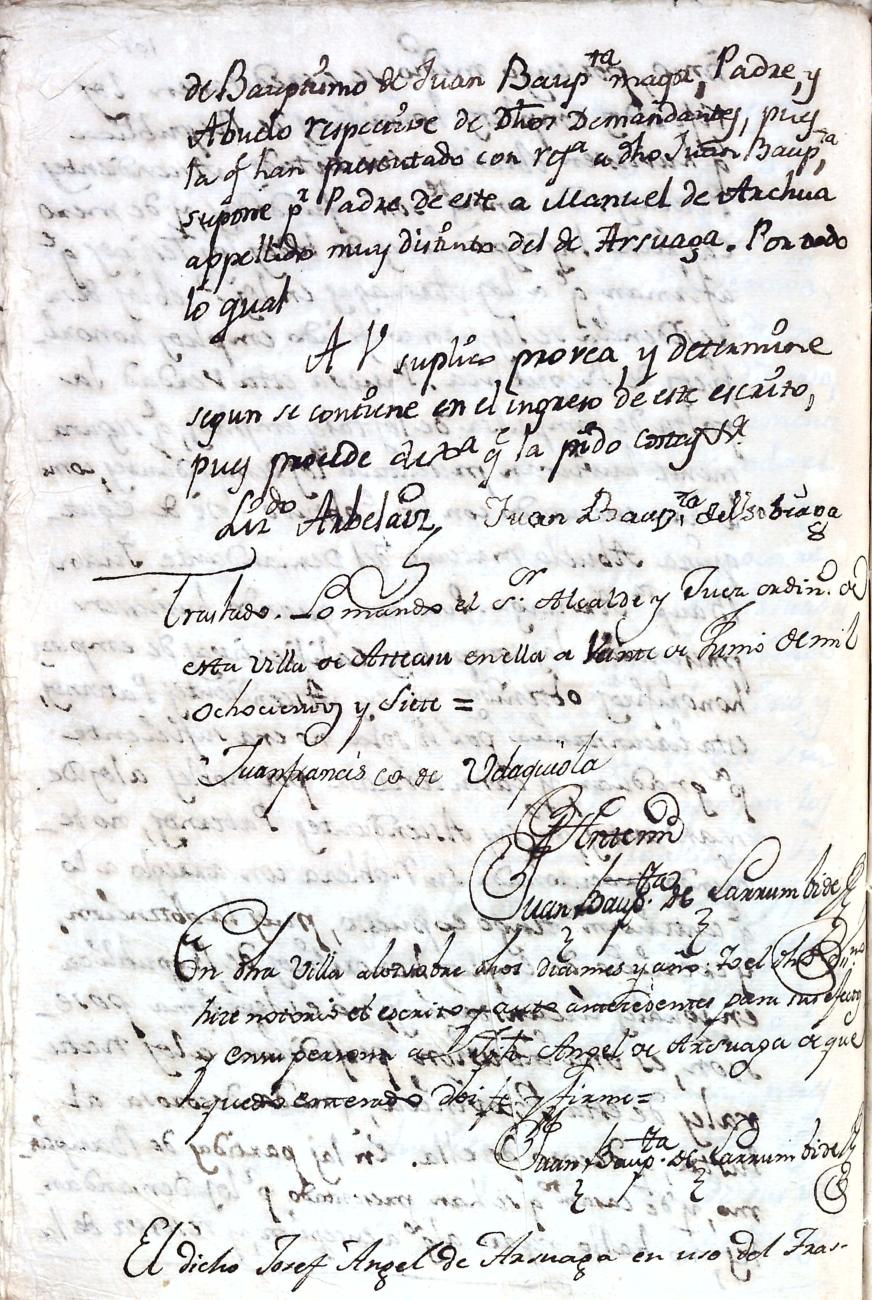 de Bauptismo de Juan Baup.ta mayor, Padre, y
Abuelo respective de dhos Demandantes, pues
la q.e han presentado con ref.a a dho Juan Baup.ta
supone p.r Padre de este a Manuel de Archua
appellido muy distinto del de Arsuaga. Por todo
lo qual
A V suplico provea y determine
segun se contiene en el ingreso de este escrito,
pues procede de Just.a q.e la pido costas
Liz.do Arbelaiz Juan Baup.ta de
Traslado. Lo mando el S.or Alcalde y Juez ordin.o de
esta villa de Atteasu en ella a Veinte de Junio de mil
ochocientos y Siete =
Juanfrancisco de Udaquiola
Antemi
Juan Baup.ta de Larrumbide
En dha Villa dhos dia mes y año: Yo el dho
hize notorio el escrito y auto antecedentes para su efecto
y en su persona a Angel de Arsuaga de que
quedo enterado doi fe y firme=
Juan Baup.ta de Larrumbide
El dicho Josef Angel de Arsuaga en uso del Tras-